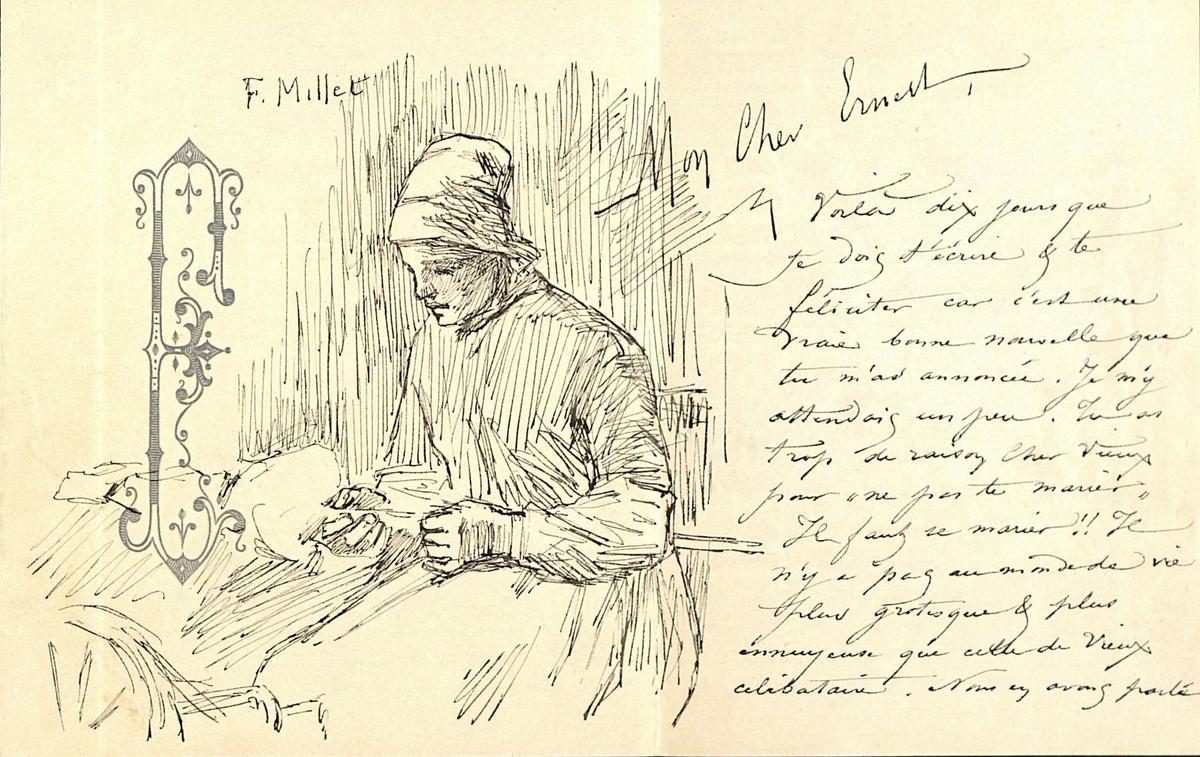 F. Millet
Mon Cher Ernest,
Voilà dix jours que
je dois t'écrire & te
féliciter car c'est une
vraie bonne nouvelle que
tu m'as annoncée. Je m'y
attendais un peu. Tu as
trop de raison Cher Vieux
pour "ne pas te marier"
Il faut se marier !! Il
n'y a pas au monde de vie
plus grotesque & plus
ennuyeuse que celle de Vieux
célibataire. Nous en avons parlé